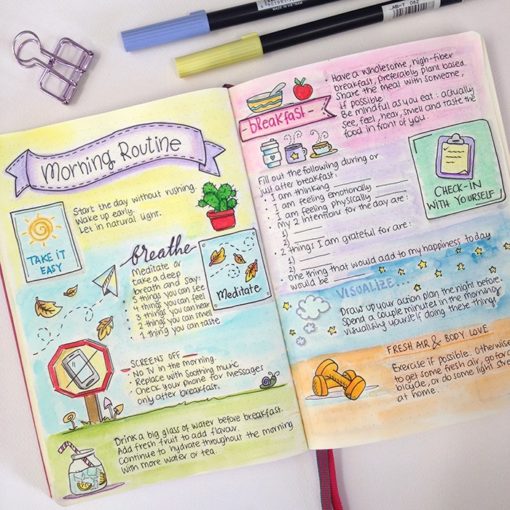 Morning Routine
Start the day without rushing
Wake up early.
Let in natural light.
TAKE IT
EASY
breathe
Meditate or
take a deep
breath and say:
5 things you can see
4 things you can feel
3 things you can hear
2 things you can smell
1 thing you can taste
Meditate
SCREENS OFF
No TV in the morning.
Replace with soothing music
Check your phone for messages
only after breakfast.
Drink a big glass of water before breakfast.
Add fresh fruit to add flavour.
Continue to hydrate throughout the morning
with more water or tea.
- breakfast -
Have a wholesome, high-fiber
breakfast, preferably plant based
Share the meal with someone,
if possible
Be mindful as you eat: actually
see, feel, hear, smell and taste the
food in front of you.
Fill out the following during or
just after breakfast:
I am thinking
I am feeling emotionally
I am feeling physically
my 2 intention for the day are:
1)
2)
2 things I am grateful for are:
1)
2)
one thing that would add to my happiness today
would be
CHECK-IN
WITH YOURSELF
VISUALIZE...
Draw up your action plan the night before.
Spend a couple minutes in the morning
visualising yourself doing these things!
FRESH AIR & BODY LOVE
Exercise if possible. otherwise
to get some fresh air, go for a
bicycle, or do some light
at home.